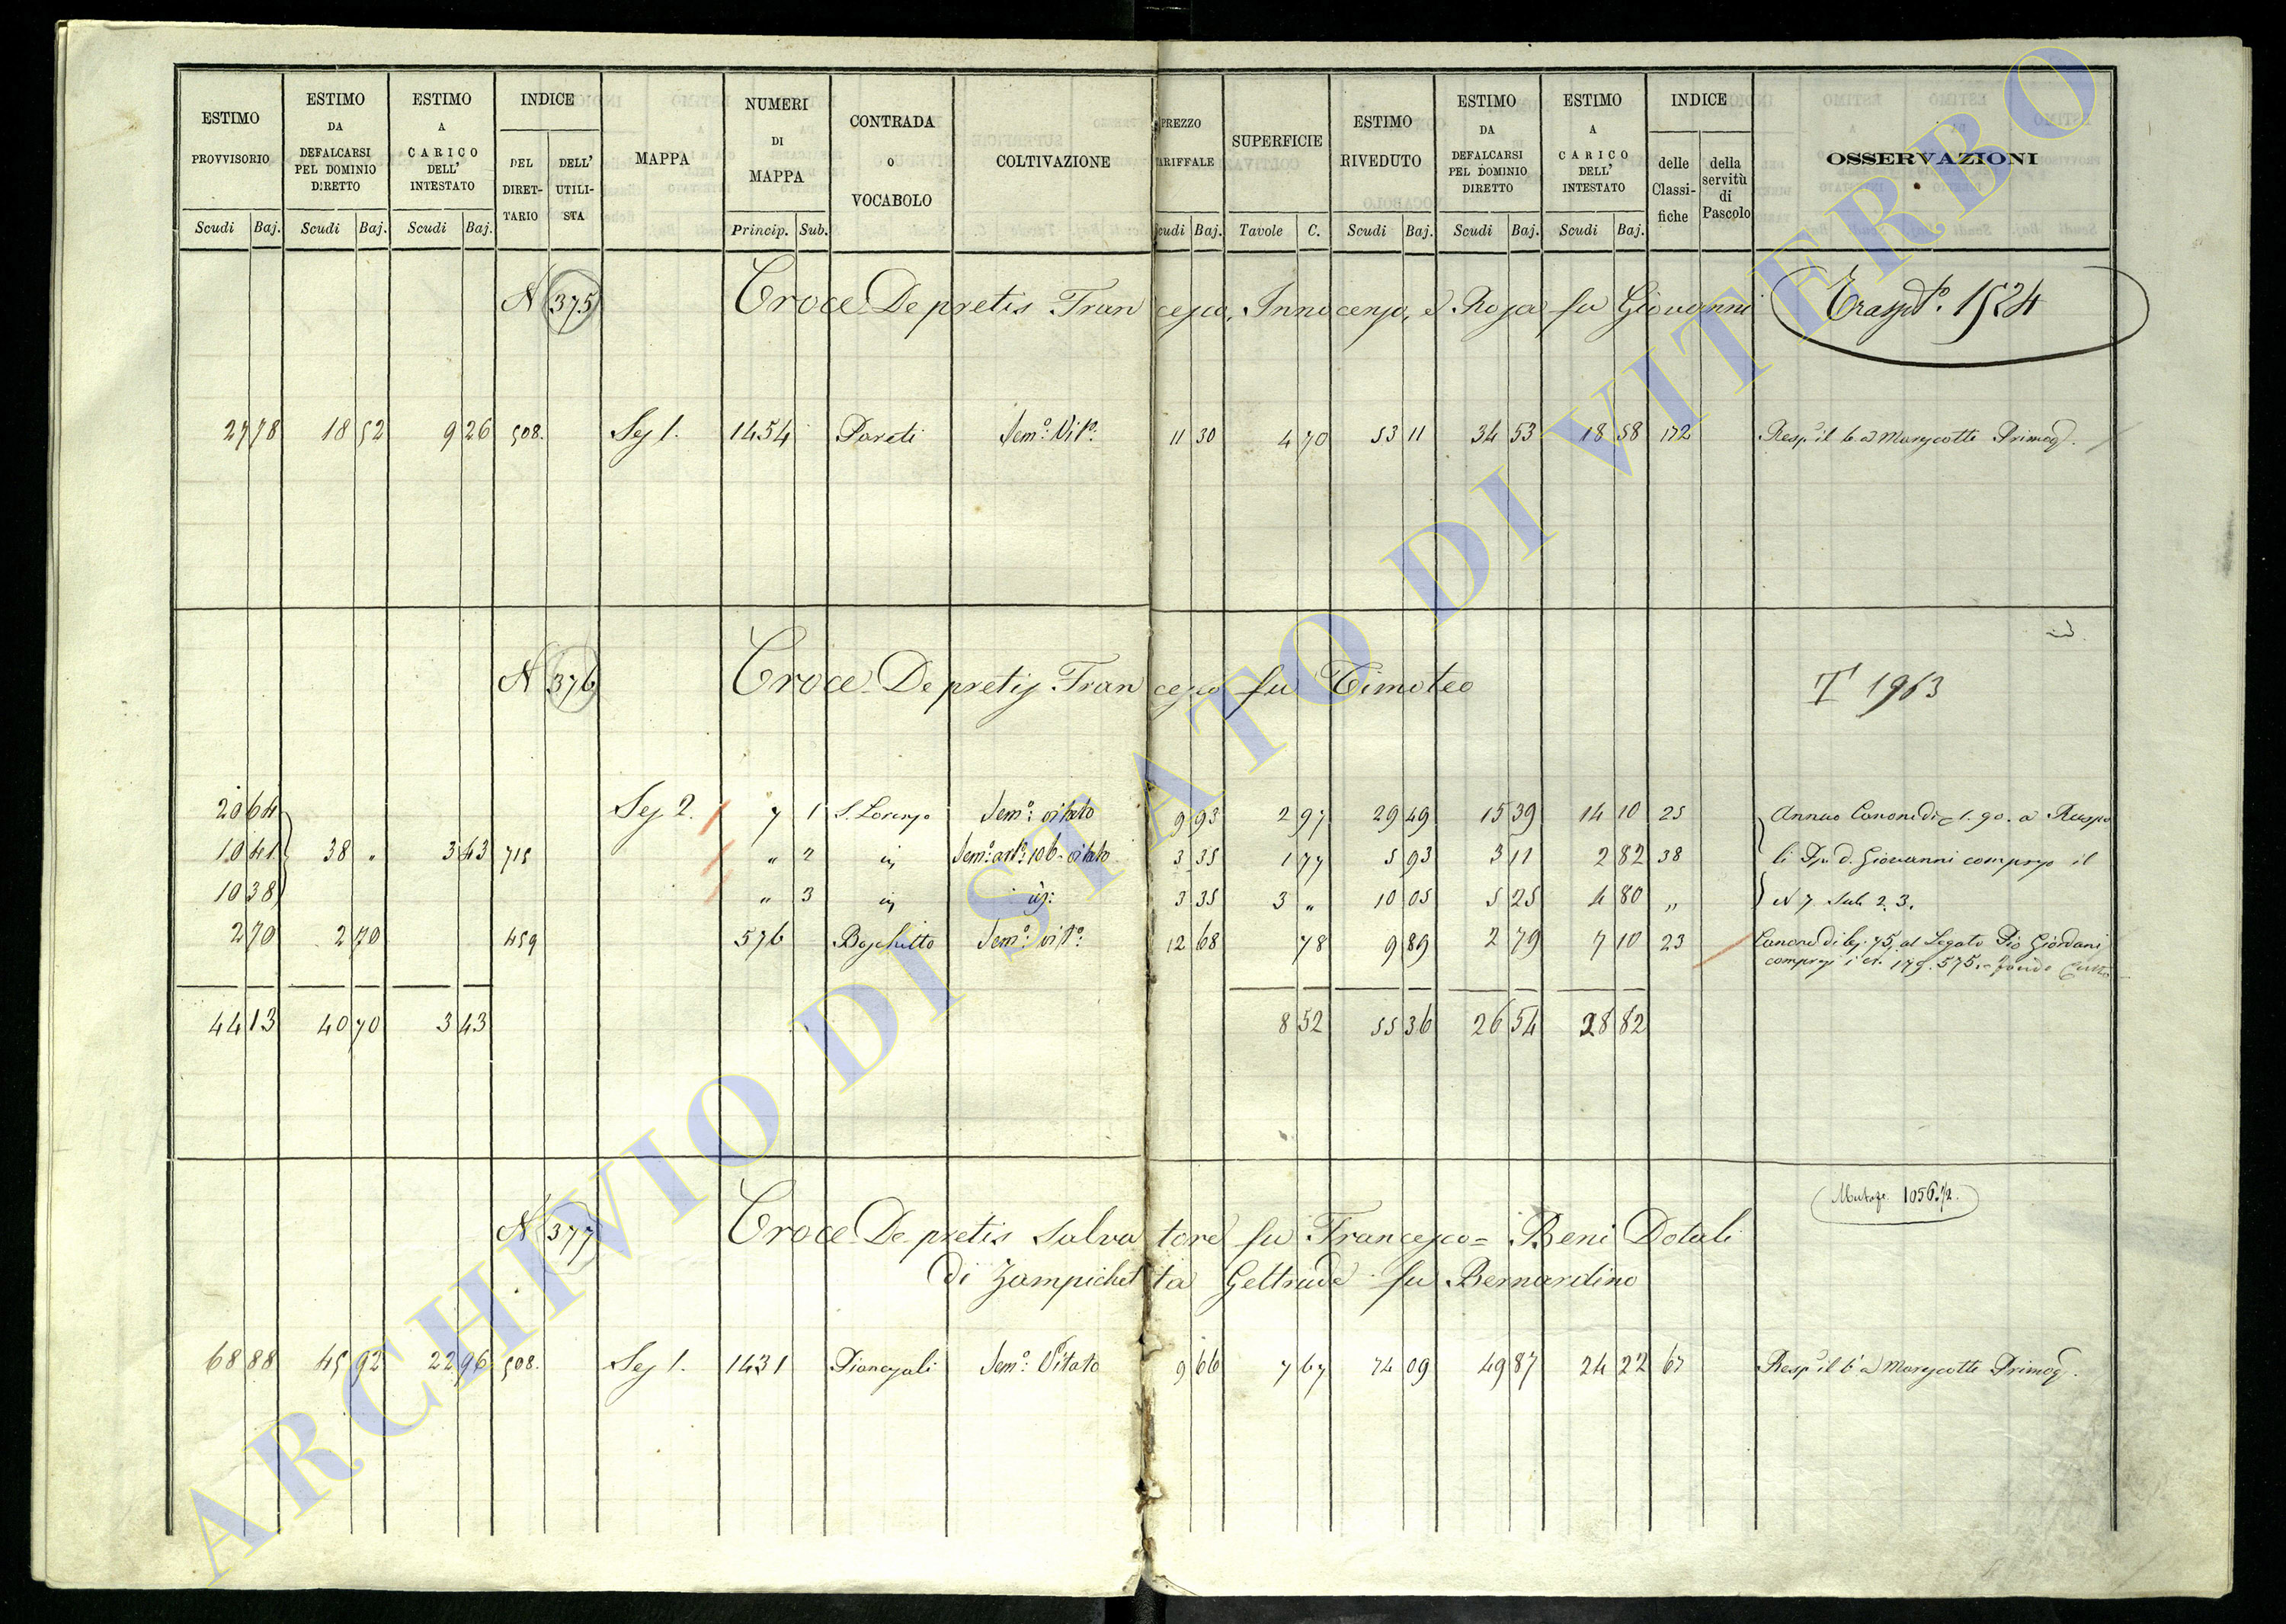 ESTIMO PROVVISORIO Scudi Baj. ESTIMO DA DEFALCARSI PEL DOMINIO DIRETTO Scudi Baj. ESTIMO A CARICO DELL' INTESTATO Scudi Baj. INDICE DEL DIRETTARIO DELL' UTILISTA MAPPA NUMERI DI MAPPA Princip. Sub. CONTRADA O VOCABOLO COLTIVAZIONE PREZZO TARIFFALE Scudi Baj. SUPERFICIE Tavole C. ESTIMO RIVEDUTO Scudi Baj. ESTIMO DA DEFALCARSI PEL DOMINIO DIRETTO Scudi Baj. ESTIMO A CARICO DELL' INTESTATO Scudi Baj. INDICE delle Classifiche della servitù di Pascolo OSSERVAZIONI
N 375 Croce Depretis Francesco, Innocenzo, e Rosa fu Giovanni Trasp.to 1524
27 78 18 52 9 26 508. Sez 1. 1454 Pareti Sem.o Vit.o 11 30 4 70 53 11 34 53 18 58 172 Resp. il 6 a Marzcotti Primog.
N 376 Croce Depretis Francesco fu Timoteo T 1963
20 64 Sez 2. 7 1 S. Lorenzo Sem.o vitato 9 93 2 97 29 49 15 39 14 10 25 Annuo Canone di 1.90. a Ruspo
10 41 38 " 3 43 715 " 2 id Sem.o art.o 106 vitato 3 35 1 77 5 93 3 11 2 82 38 li D. Giovanni compreso il
10 38 " 3 id id: 3 35 3 " 10 05 5 25 4 80 " N 7 Sub 2.3.
2 70 2 70 459 576 Boschetto Sem.o vit.o 12 68 78 9 89 2 79 7 10 23 Canone di bj. 75, al Legato Pio Giordani
compresi i N. 179. 575. fondo
44 13 40 70 3 43 8 52 55 36 26 54 28 82
Mutaz. 1056 1/2.
N 377 Croce Depretis Salvatore fu Francesco = Beni Dotali
di Zampichetta Geltrude fu Bernardino
68 88 45 92 22 96 508. Sez 1. 1431 Piangoli Sem.o Vitato 9 66 7 67 74 09 49 87 24 22 67 Resp. il 6 a Marzcotti Primog.
ARCHIVIO DI STATO DI VITERBO